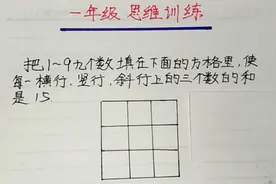 一年级 思维训练
把1~9九个数填在下面的方格里，使
每一横行、竖行、斜行上的三个数的和
是 15.